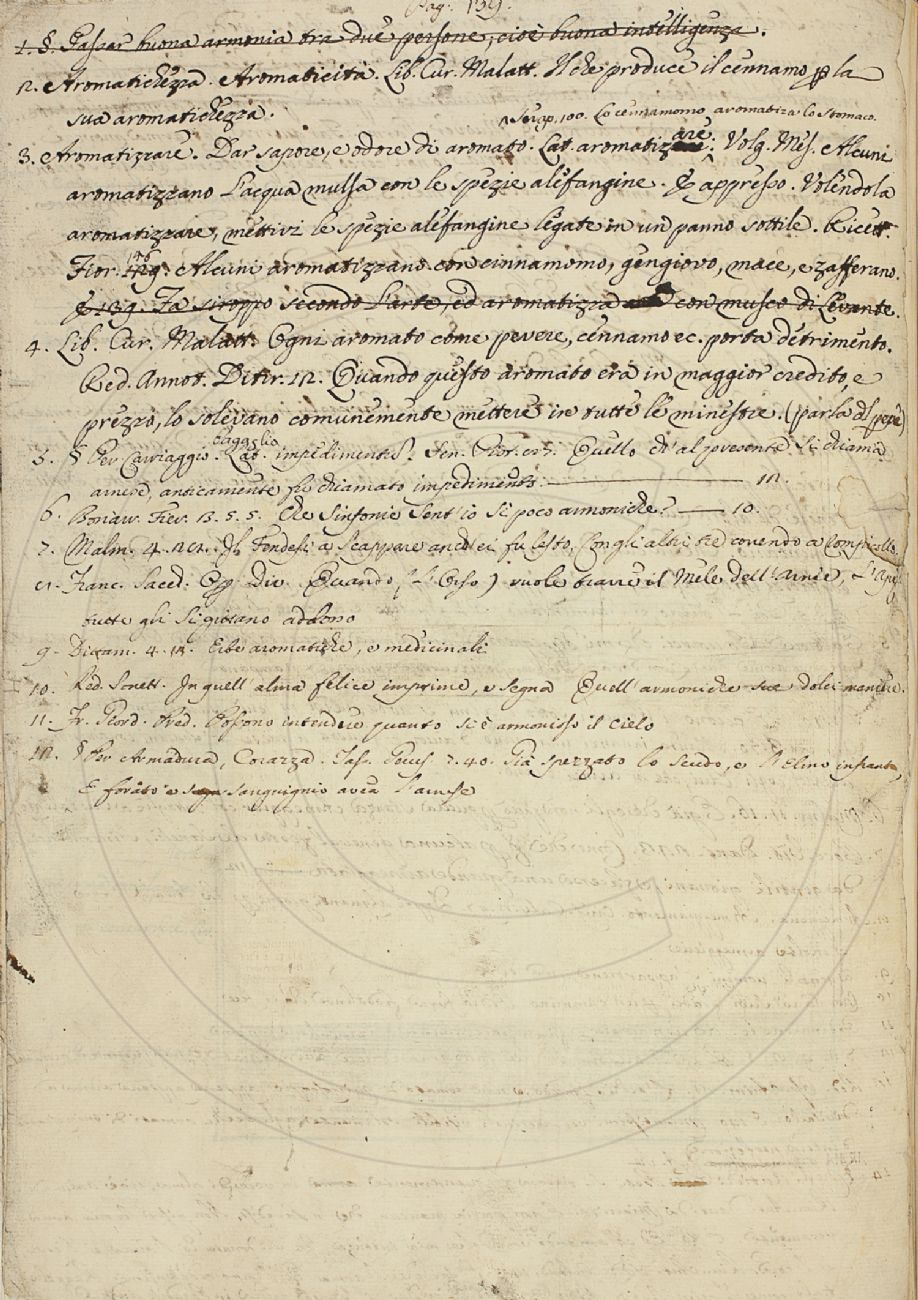 Pag. 139.
1. §. Passar buona armonia tra due persone, cioè buona intelligenza.
2. Aromatichezza. Aromaticità. Lib. Cur. Malatt. Il che produce il cennamo p la
sua aromatichezza.
Serap. 100. Lo cennamomo aromatiza lo stomaco.
3. Aromatizzare. Dar sapore, e odore di aromato. Lat. aromatizare. Volg. Mes. Alcuni
aromatizzano l'acqua mulsa con le spezie alefangine. E appresso. Volendola
aromatizzare, mettivi le spezie alefangine legate in un panno sottile. Ricett.
Fior. Alcuni aromatizzano con cinnamomo, gengiovo, mace, e zafferano.
E 139. Fa siroppo secondo l'arte, ed aromatizza con musco di Levante.
4. Lib. Cur. Malatt. Ogni aromato come pevere, cennamo ec. porta detrimento.
Red. Annot. Ditir. 12. Quando questo aromato era in maggior credito, e
prezzo, lo solevano comunemente mettere in tutte le minestre. (parla del pepe)
5. § Per Carriaggio. bagaglio Lat. impedimenta. Sen. Pist. Quello ch' al presente si chiama
arnese, anticamente fu chiamato impedimento. 12.
6. Bonarr. Fier. 3. 5. 5. Che Sinfonie sent' io sì poco armoniche? 10.
7. Malm. 4. Il Fendesi a scappare anch' ei fu lesto, Con gli altri tre correndo a rompicollo.
Franc. Sacch. Op. Div. Quando, (l' Orso) vuole trarre il Mele dell' Arnie, l' Api
tutte gli si gittano addosso
9. Dicam. 4. Erbe aromatiche, e medicinali
10. Red. Sonett. In quell' alma felice imprime, e segna Quell' armoniche sue dolci maniere.
11. Fr. Giord. Pred. Possono intendere quanto si è armonioso il Cielo
12. § Per Armadura, Corazza. Tass. Gerus. 7. 40. Già spezzato lo scudo, e l' elmo infranto,
E forato e sanguignio avea l' arnese